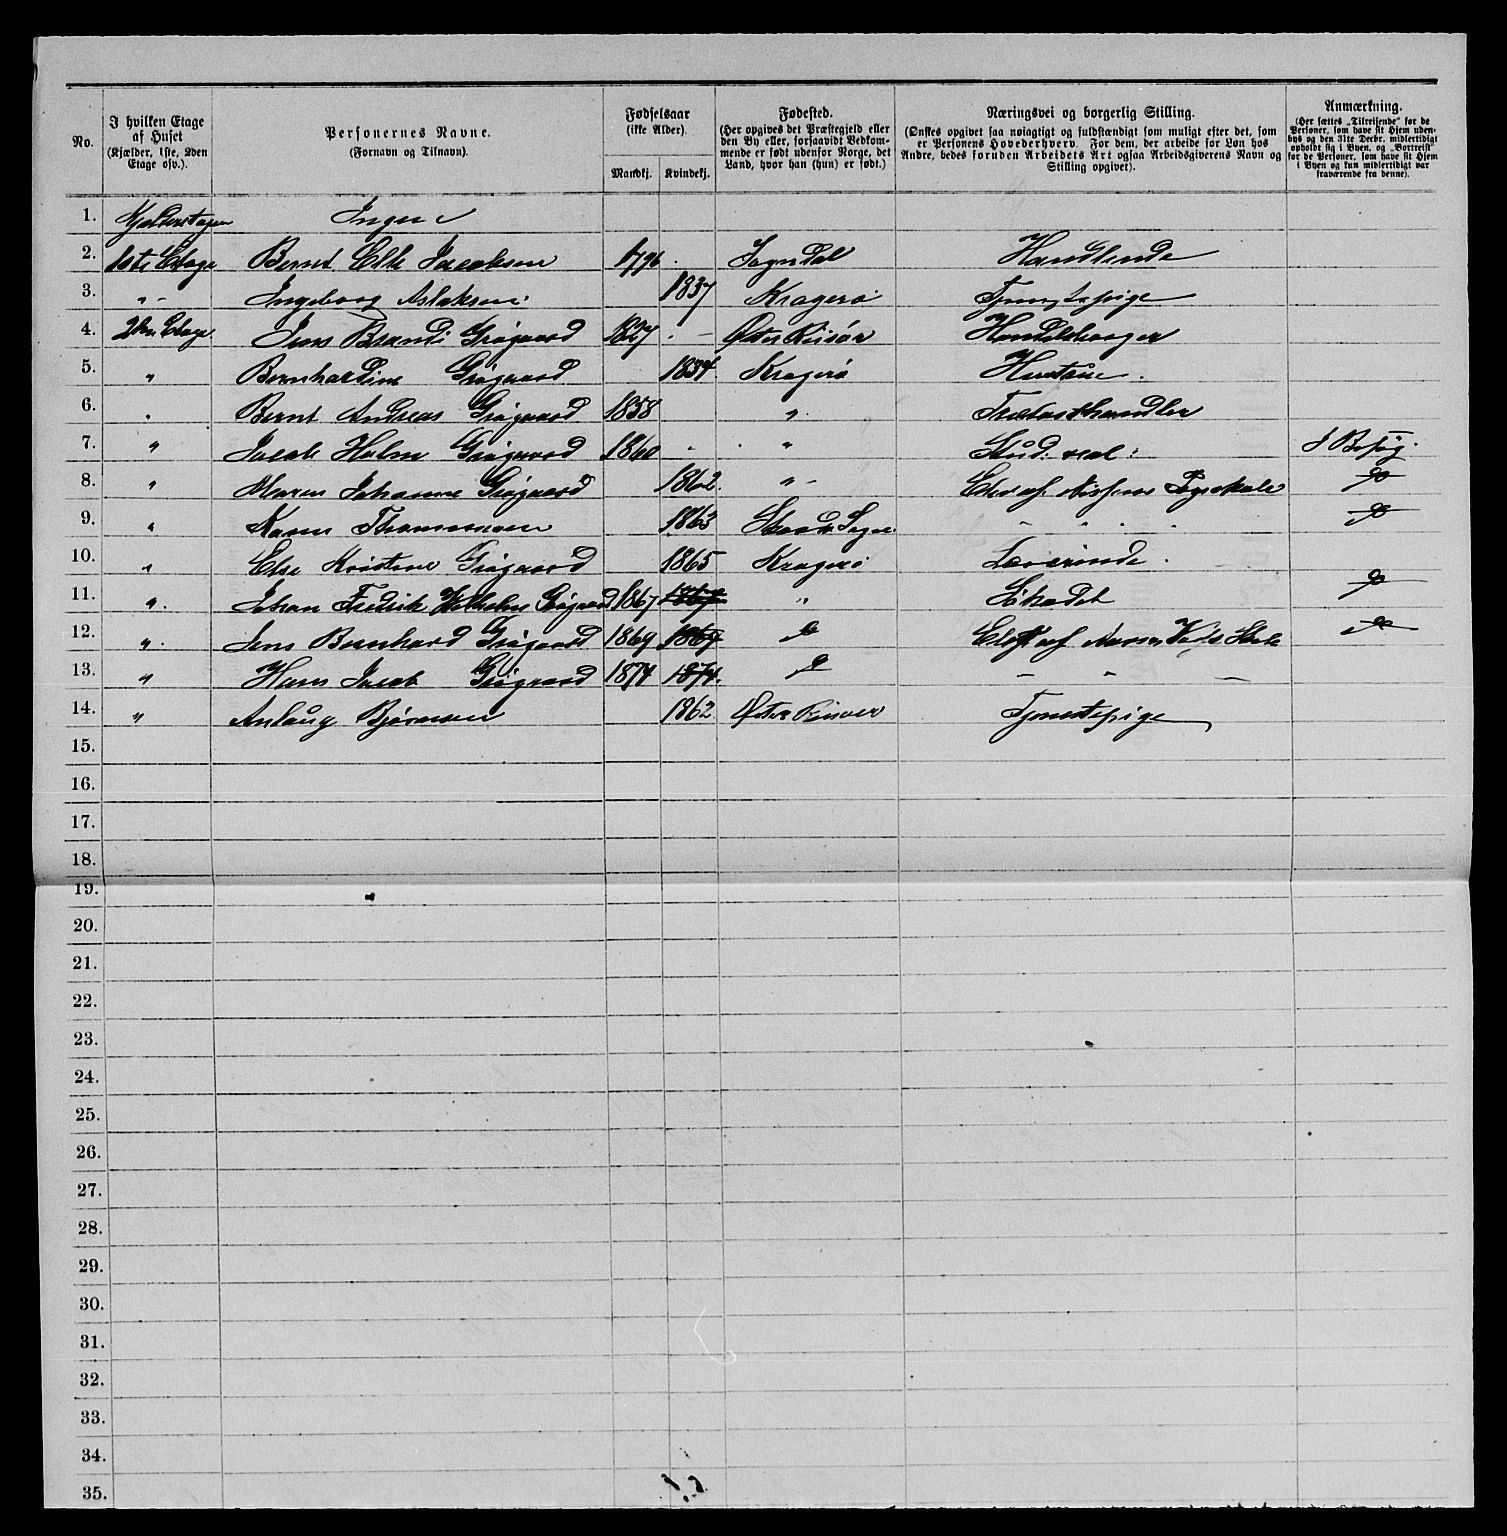 No.
I hvilken Etage af Huset (Kjælder, 1ste, 2den Etage osv.).
Personernes Navne. (Fornavn og Tilnavn).
Fødselsaar (ikke Alder).
Mandkj. Kvindekj.
Fødested. (Her opgives det Præstegjeld eller den By eller, forsaavidt Vedkommende er født udenfor Norge, det Land, hvor han (hun) er født.)
Næringsvei og borgerlig Stilling. (Ønskes opgivet saa nøiagtigt og fuldstændigt som muligt efter det, som er Personens Hovederhverv. For dem, der arbeide for Løn hos Andre, bedes foruden Arbeidets Art ogsaa Arbeidsgiverens Navn og Stilling opgivet).
Anmærkning. (Her sættes „Tilreisende" for de Personer, som have sit Hjem udenbys og den 31te Decbr. midlertidigt opholdt sig i Byen, og „Bortreist" for de Personer, som have sit Hjem i Byen og kun midlertidigt var fraværende fra denne).
1. Kjelderetagen Ingen
2. 1ste Etage Bernt Jacobsen 1796 Sogndal Handlende
3. " Ingeborg Aslaksen 1837 Kragerø Tjenestepige
4. 2den Etage Jens Brandi Grøgaard 1827 Øster Riisør Handelsborger
5. " Bernhardine Grøgaard 1834 Kragerø Hustrue
6. " Bernt Andreas Grøgaard 1858 " Trælasthandler
7. " Jacob Holm Grøgaard 1860 " Stud: real: I Besøg
8. " Maren Johanne Grøgaard 1862 " Elev af Nissens Pigeskole do
9. " Karen Thommesen 1863 Sogn " do
10. " Else Kristine Grøgaard 1865 Kragerø Lærerinde
11. " Johan Fredrik Wilhelm Grøgaard 1867 1867 " Søkadet do
12. " Jens Bernhard Grøgaard 1869 1869 do Elev af Skole do
13. " Hans Jacob Grøgaard 1874 1874 do "
14. " Anlaug Bjørnsen 1862 Øster Riisøer Tjenestepige
15.
16.
17.
18.
19.
20.
21.
22.
23.
24.
25.
26.
27.
28.
29.
30.
31.
32.
33.
34.
35.